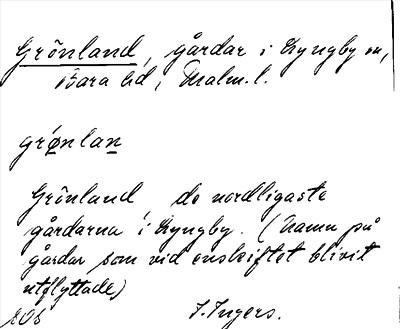 Grönland, gårdar i Kyngby sn,
Bara hd, Malm. l.
grǿnlan
Grönland de nordligaste
gårdarna i Kyngby. (Namn på
gårdar som vid enskiftet blivit
utflyttade)
I. Ingers.